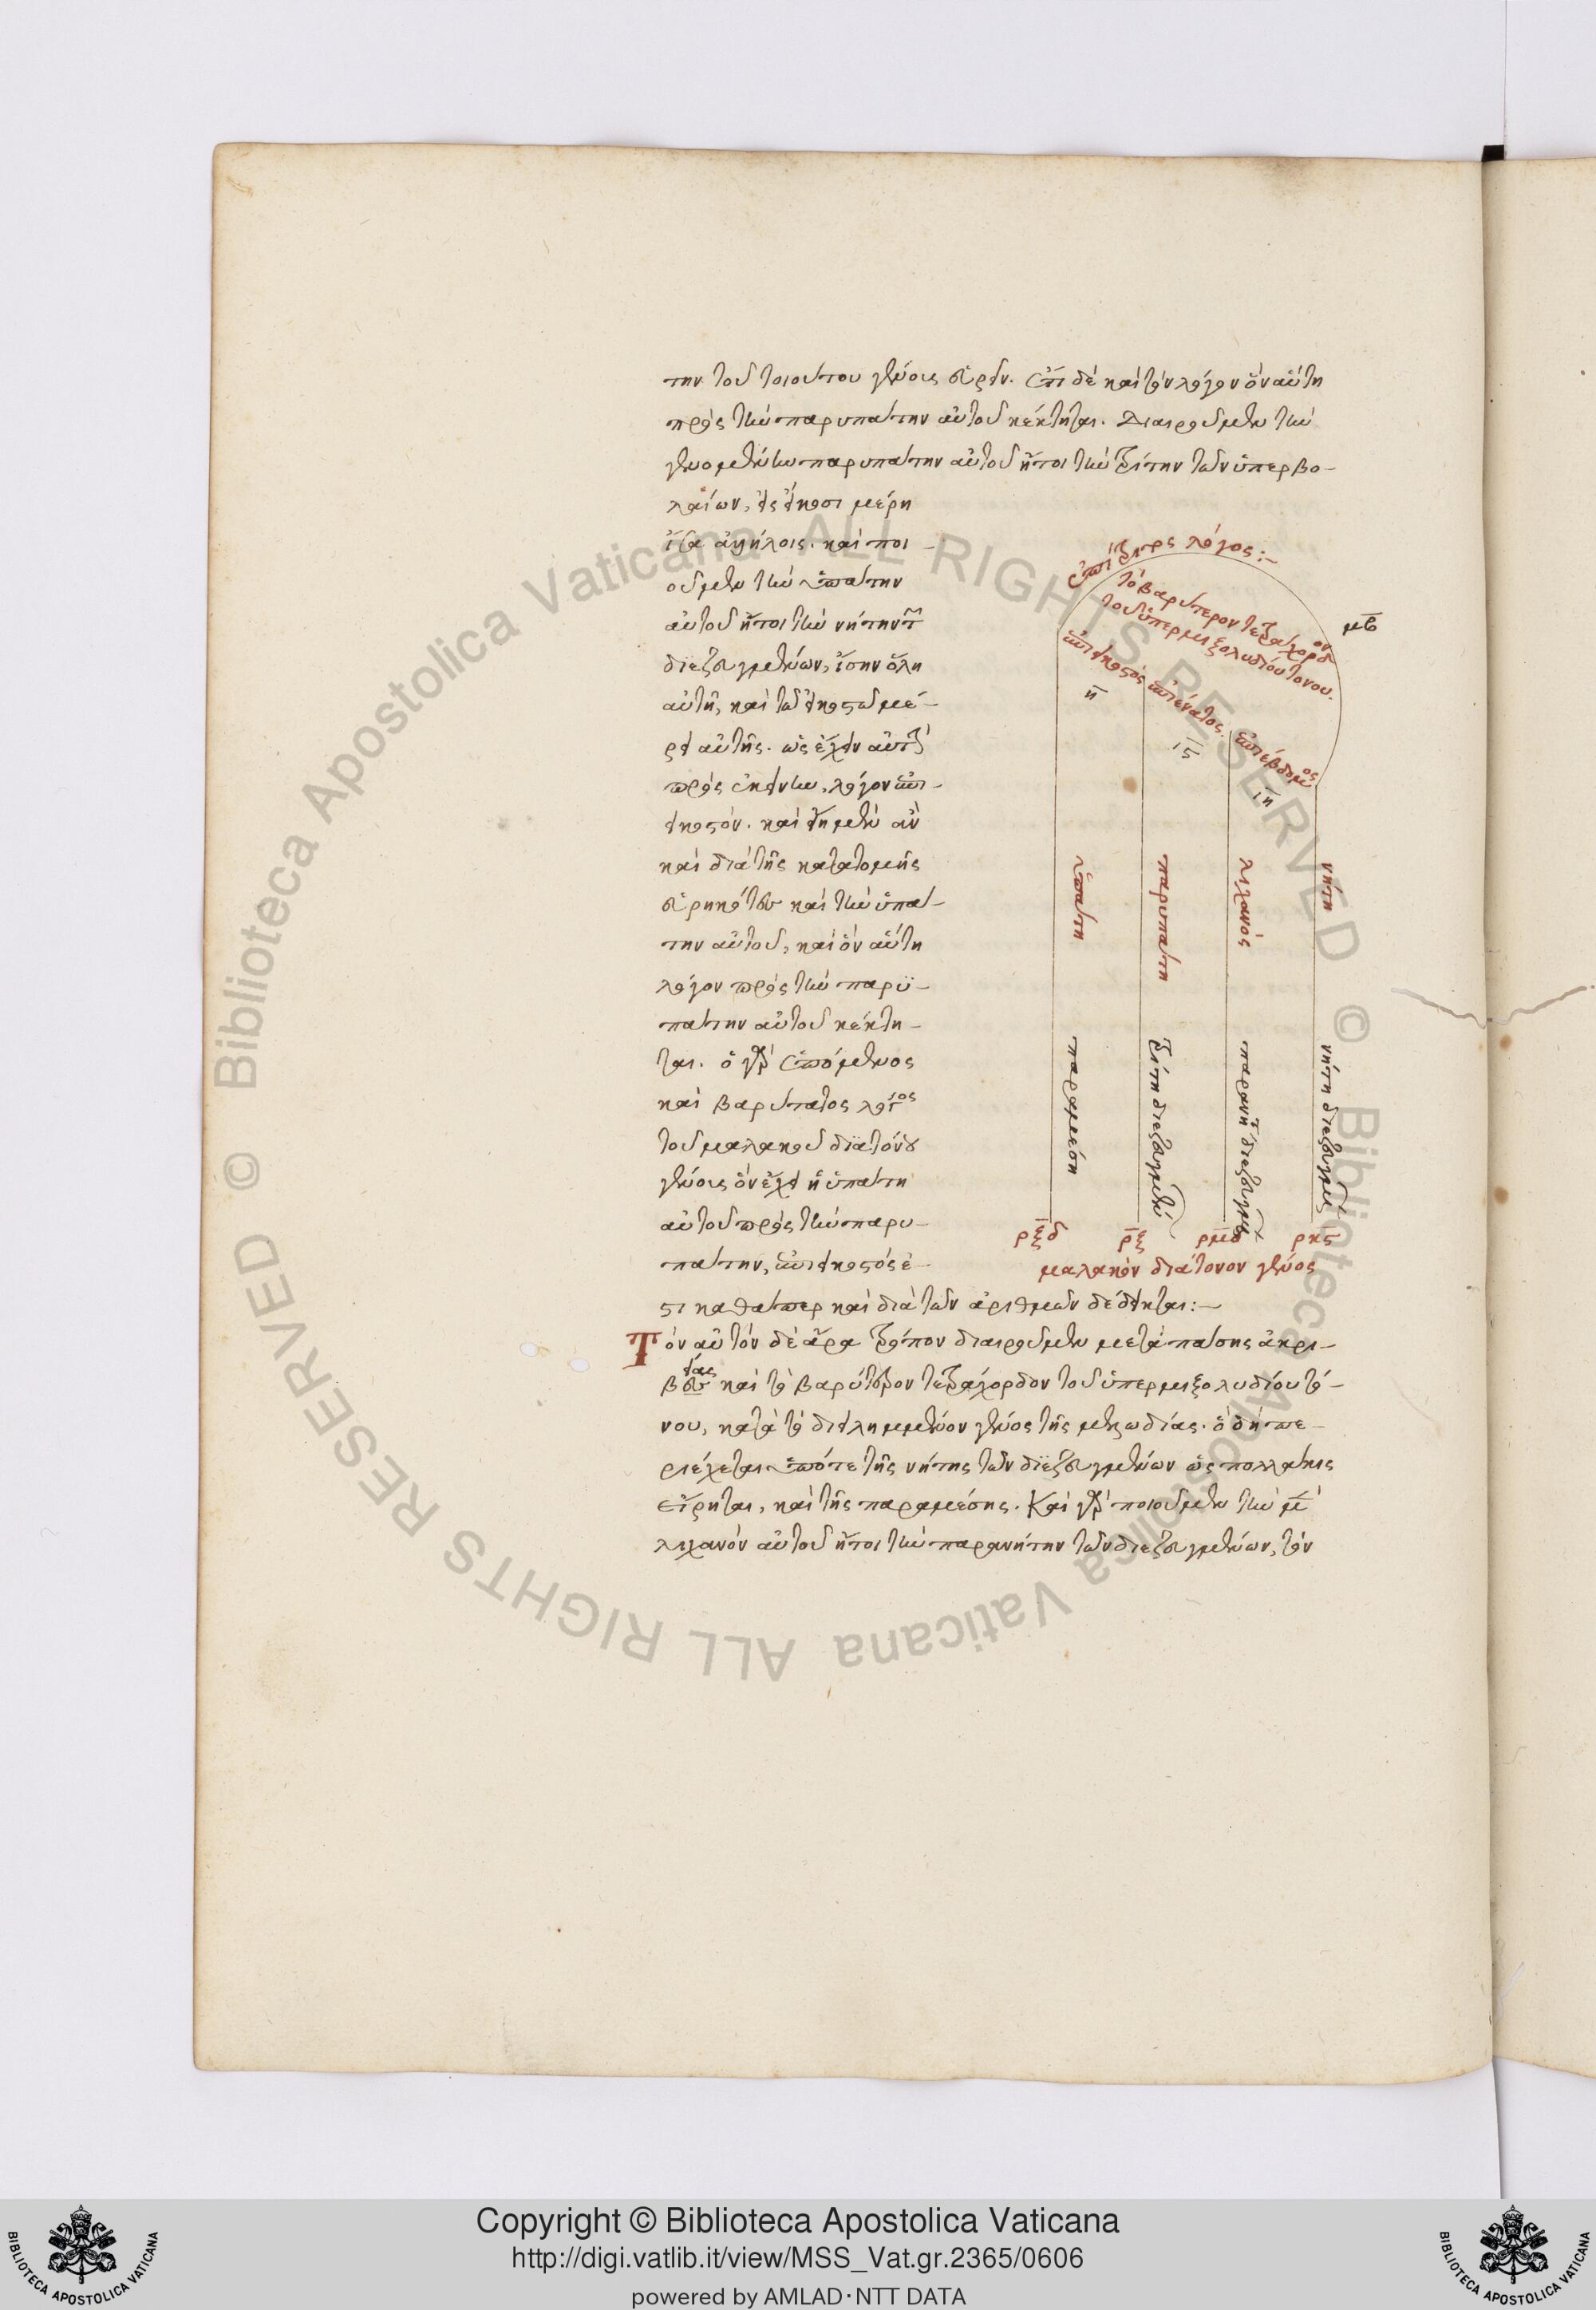 την τοῦ τοιούτου γένους εὑρεῖν. ἔτι δὲ καὶ τὸν λόγον ὃν αὕτη
πρὸς τὴν παρυπάτην αὐτοῦ κέκτηται. Διαιροῦμεν τὴν
γενομένην παρυπάτην αὐτοῦ ἤτοι τὴν τρίτην τῶν ὑπερβο-
λαίων, εἰς εἴκοσι μέρη
ἴσα ἀλλήλοις. καὶ ποι-
οῦμεν τὴν ὑπάτην
αὐτοῦ ἤτοι τὴν νήτην τ
διεζευγμένων, ἴσην ὅλη
αὐτῆ, καὶ τῶ εἰκοστῶ μέ-
ρει αὐτῆς. ὡς ἔχειν αὐτὴν
πρὸς ἐκείνην, λόγον ἐπι-
εικοστόν. καὶ εἴημεν ἂν
καὶ διὰ τῆς κατατομῆς
εὑρηκότες καὶ τὴν ὑπά-
την αὐτοῦ, καὶ ὃν αὕτη
λόγον πρὸς τὴν παρϋ-
πάτην αὐτοῦ κέκτη-
ται. ὁ γὰρ ἑπόμενος
καὶ βαρύτατος λόγος
τοῦ μαλακοῦ διατόνου
γένους ὃν ἔχει ἡ ὑπάτη
αὐτοῦ πρὸς τὴν παρυ-
πάτην, ἐπιεικοστός ἐ-
στι καθάπερ καὶ διὰ τῶν ἀριθμῶν δέδεικται:—
Τὸν αὐτὸν δὲ ἄρα τρόπον διαιροῦμεν μετὰ πάσης ἀκρι-
βείας καὶ τὸ βαρύτερον τετράχορδον τοῦ ὑπερμιξολυδίου τό-
νου, κατὰ τὸ διειλημμένον γένος τῆς μελωδίας. ὃ δὴ πε-
ριέχεται ὑπό τε τῆς νήτης τῶν διεζευγμένων ὡς πολλάκις
εἴρηται, καὶ τῆς παραμέσης. Καὶ γὰρ ποιοῦμεν τὴν μὲν
λιχανὸν αὐτοῦ ἤτοι τὴν παρανήτην τῶν διεζευγμένων, τὸν
ἐπίτριτος λόγος:—
τὸ βαρύτερον τετράχορδον
τοῦ ὑπερμιξολυδίου τόνου.
μβ
ἐπιεικοστός
ἐπιένατος.
ἐπιέβδομος
η
ιϛ
ιη
ὑπάτη
παρυπάτη
λιχανός
νήτη
παραμέση
τρίτη διεζευγμένων
παρανήτη διεζευγμένων
νήτη διεζευγμένων
ρξδ
ρξ
ρμδ
ρκϛ
μαλακὸν διάτονον γένος
Copyright © Biblioteca Apostolica Vaticana
http://digi.vatlib.it/view/MSS_Vat.gr.2365/0606
powered by AMLAD·NTT DATA
BIBLIOTECA APOSTOLICA VATICANA
BIBLIOTECA APOSTOLICA VATICANA
© Biblioteca Apostolica Vaticana ALL RIGHTS RESERVED
© Biblioteca Apostolica Vaticana ALL RIGHTS RESERVED